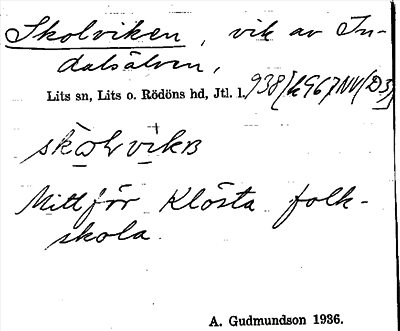 Skolviken, vik av In-
dalsälven,
Lits sn, Lits o. Rödöns hd, Jtl. l.
skolvikɐ
Mitt för Klösta folk-
skola.
A. Gudmundson 1936.